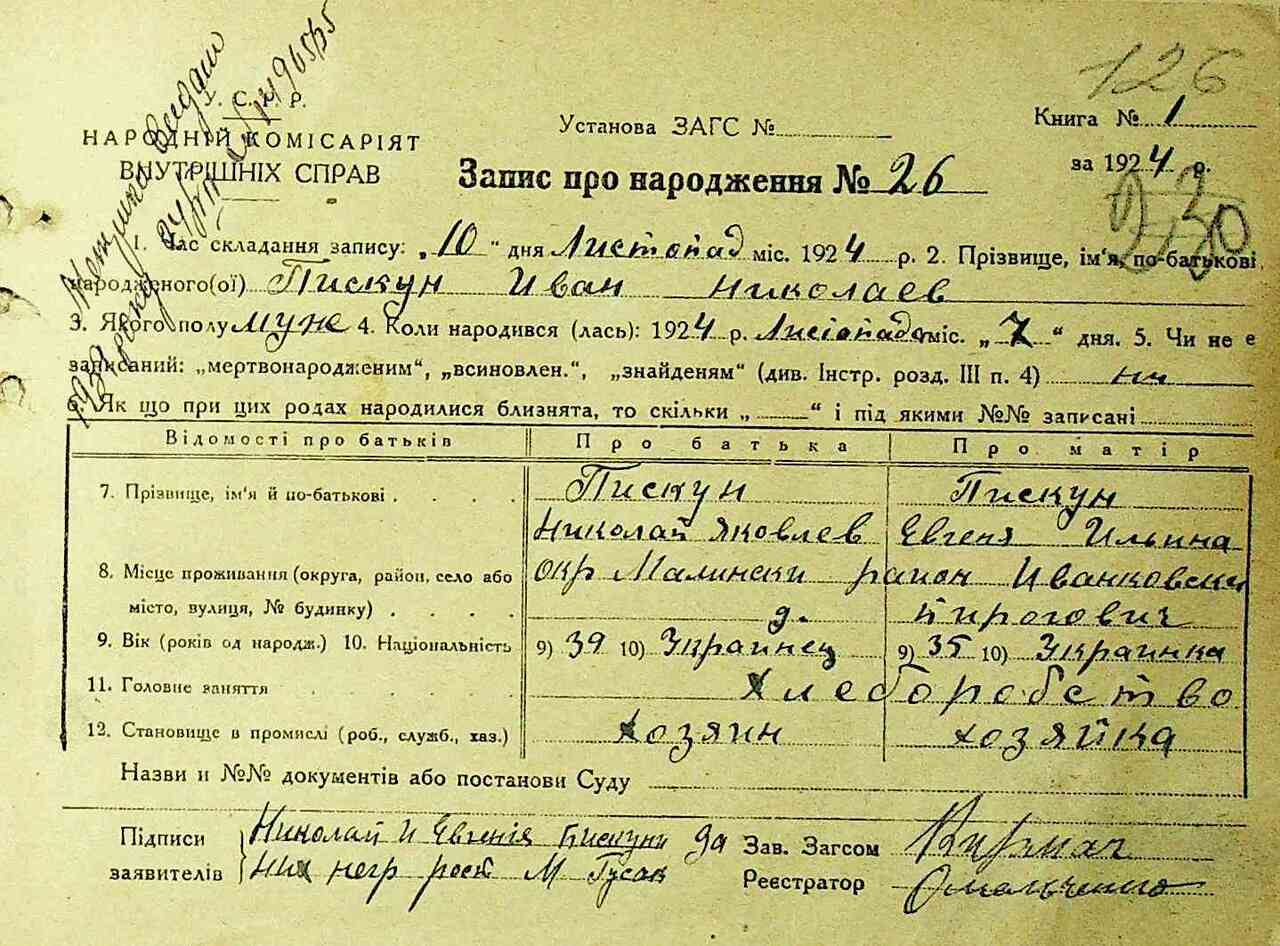 126
У. С. Р. Р.
НАРОДНІЙ КОМІСАРІЯТ
ВНУТРІШНІХ СПРАВ
Установа ЗАГС №
Книга № 1
за 1924 р.
Запис про народження № 26
30
1. Час складання запису: „10" дня Листопад міс. 1924 р. 2. Прізвище, ім'я, по-батькові
народженого(ої) Пискун Иван Николаев
3. Якого полу муж 4. Коли народився (лась): 1924 р. Листопада міс. „7" дня. 5. Чи не є
записаний: „мертвонародженим", „всиновлен.", „знайденям" (див. Інстр. розд. III п. 4)
6. Як що при цих родах народилися близнята, то скільки „ " і під якими №№ записані
Відомості про батьків Про батька Про матір
7. Прізвище, ім'я й по-батькові . . . . Пискун Пискун
Николай Яковлев Евгеня Ильина
8. Місце проживання (округа, район, село або окр Малински район Иванковский
місто, вулиця, № будинку) . . . . д. Пирогович
9. Вік (років од народж.) 10. Національність 9) 39 10) Украинец 9) 35 10) Украинка
11. Головне заняття . . . . Хлеборобство
12. Становище в промислі (роб., служб., хаз.) Хозяин хозяйка
Назви и №№ документів або постанови Суду
Підписи Николай И Евгенія Пискуни да Зав. Загсом
заявителів Них негр росп М Гусак Реєстратор Омельченко